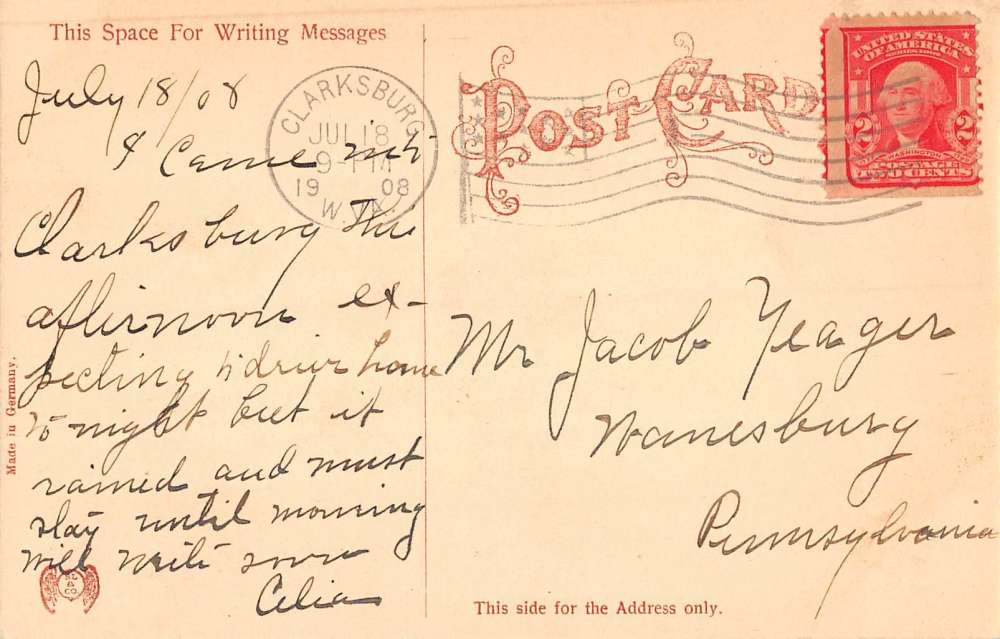 This Space For Writing Messages
July 18/08
I came into
Clarksburg this
afternoon ex-
pecting to drive home
to night but it
rained and must
stay until morning
will write soon
Celia
Made in Germany.
CLARKSBURG
JUL 18
9 - PM
19 08
W. VA.
POST CARD
UNITED STATES
OF AMERICA
2 2
WASHINGTON
POSTAGE
TWO CENTS
Mr Jacob Yeager
Wanesburg
Pennsylvania
This side for the Address only.